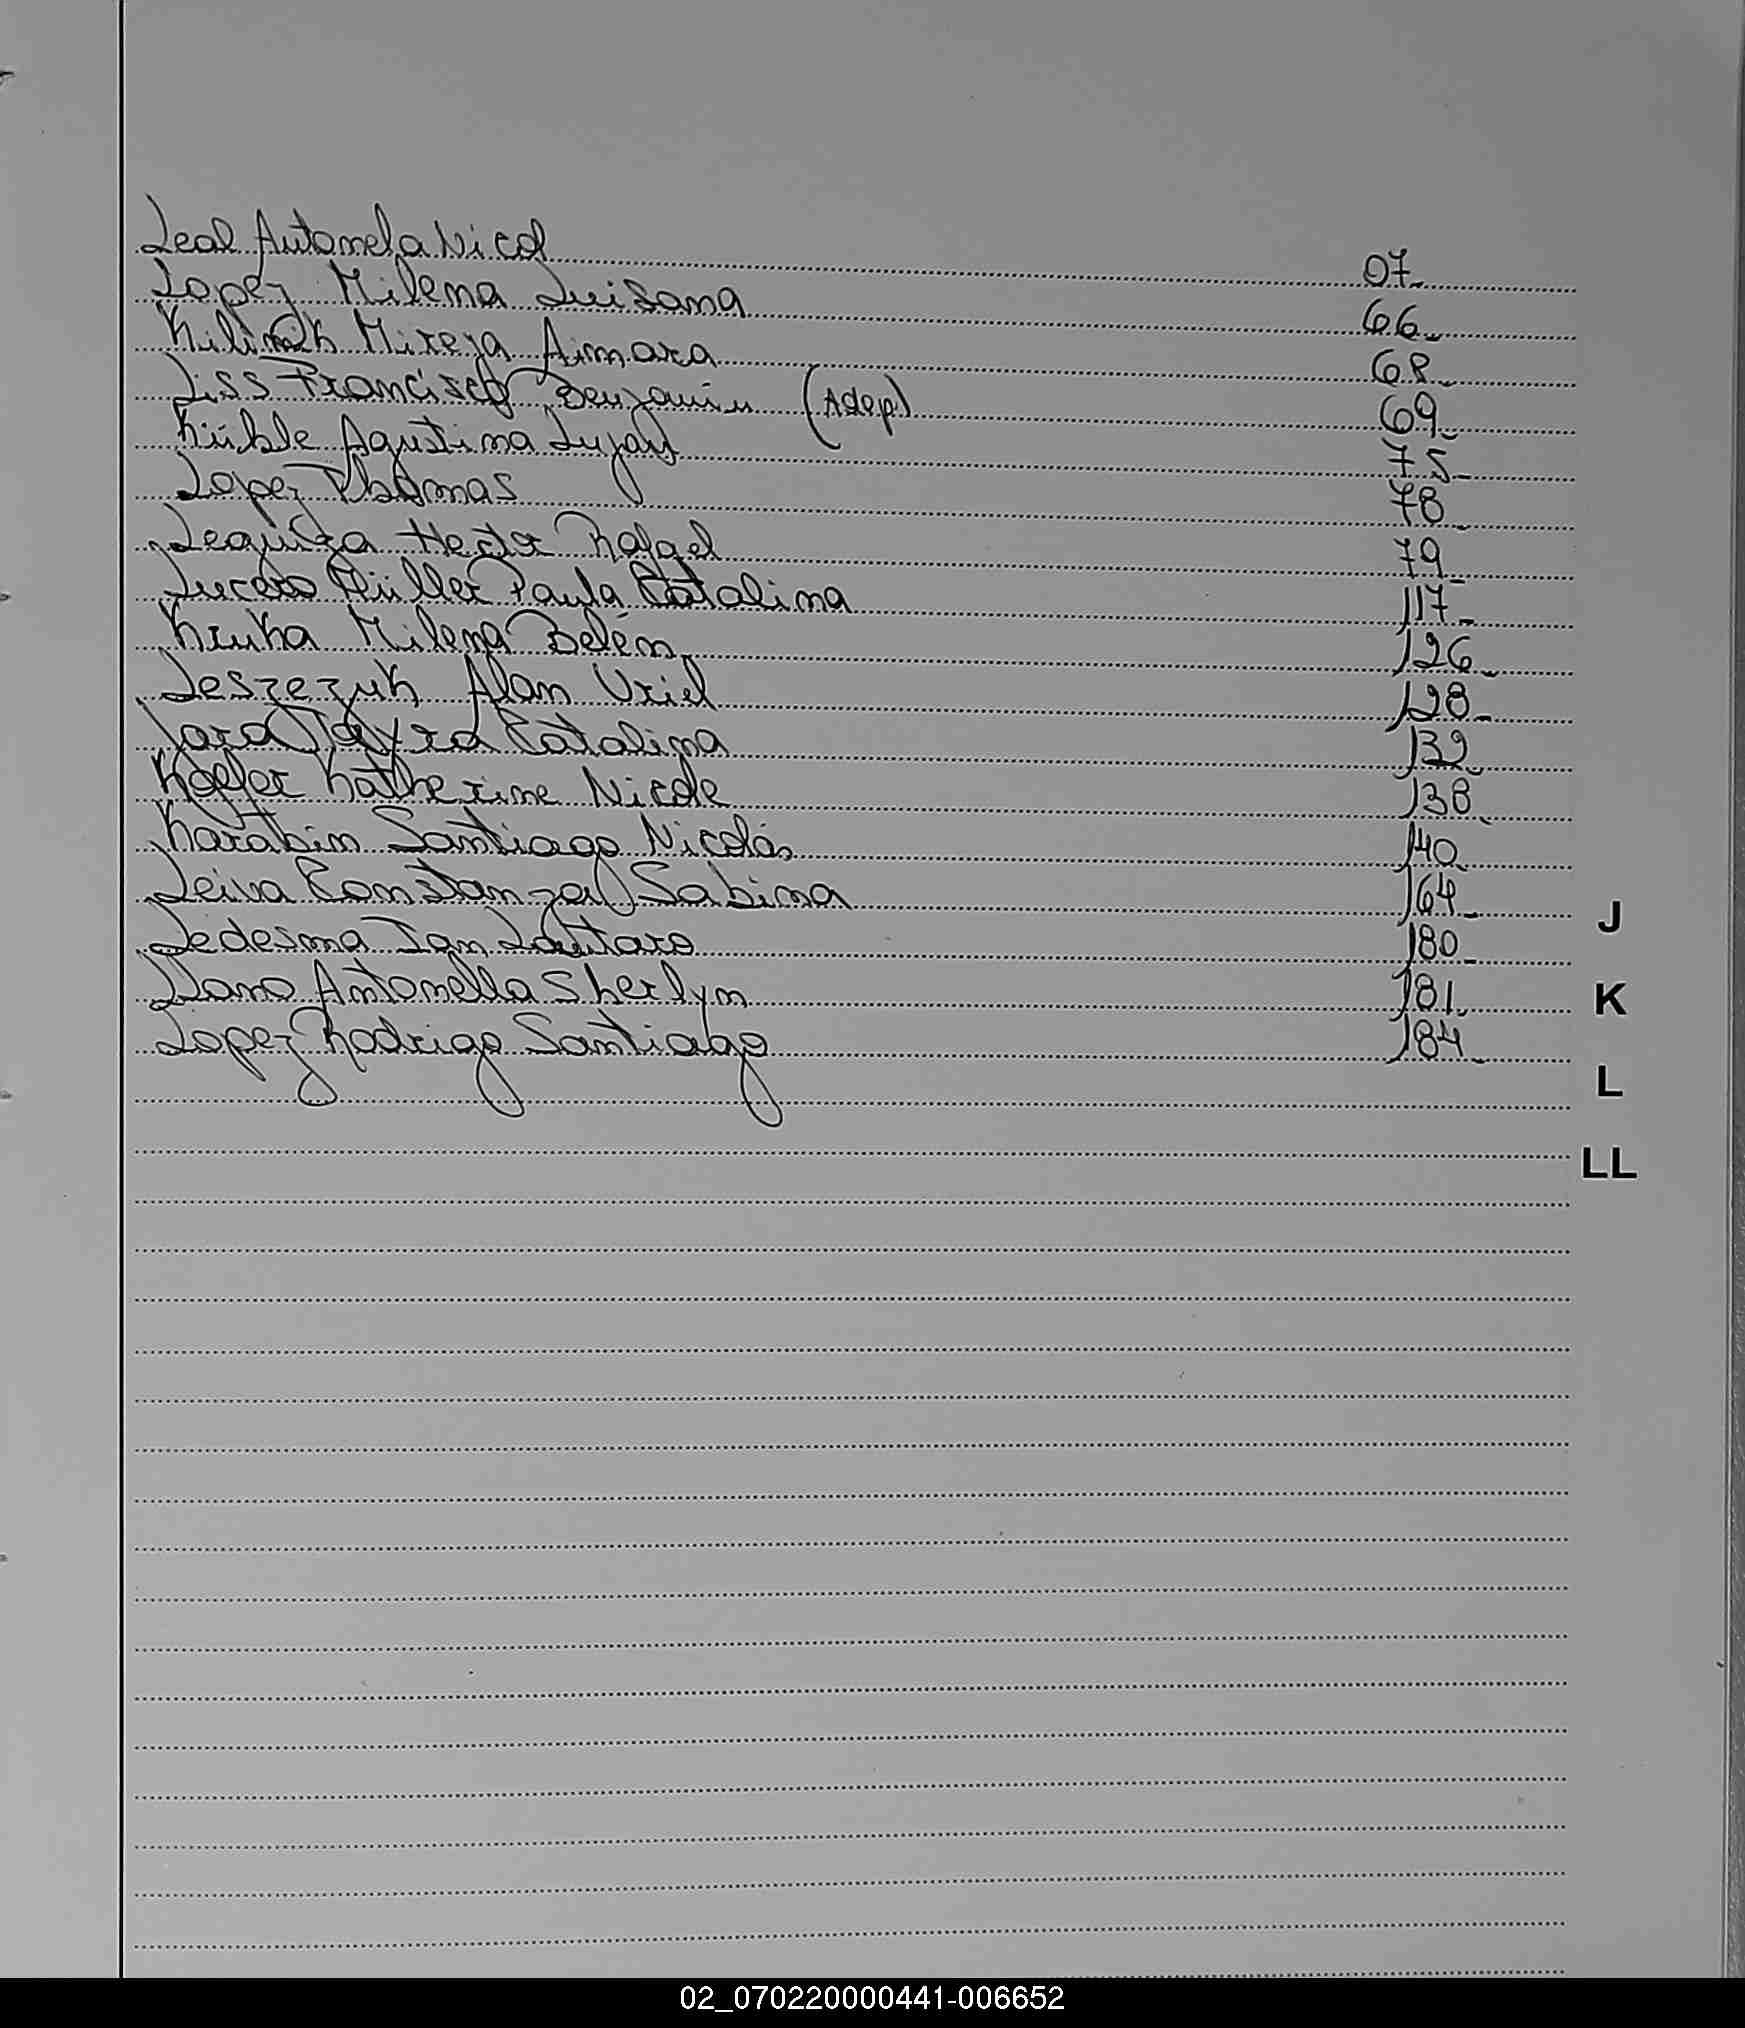 Leal Antonela Nicol 07_
Lopez Milena Luisana 66_
Kilimik Mireya Aimara 68_
Liss Francisco Benjamin (Adop) 69_
Küble Agustina Lujan 75_
Lopez Thomas 78_
Leguiza Hector Rafael 79_
Lucero Müller Paula Catalina 117_
Kruka Milena Belén 126_
Leszezuk Alan Uriel 128_
Jara Tayra Catalina 132_
Koefer Katherine Nicole 138_
Karabin Santiago Nicolás 140_
Leiva Constanza Sabina 164_
Ledesma Ian Lautaro 180_
Llano Antonella Sherlyn 181_
Lopez Rodrigo Santiago 184_
J
K
L
LL
02_070220000441-006652